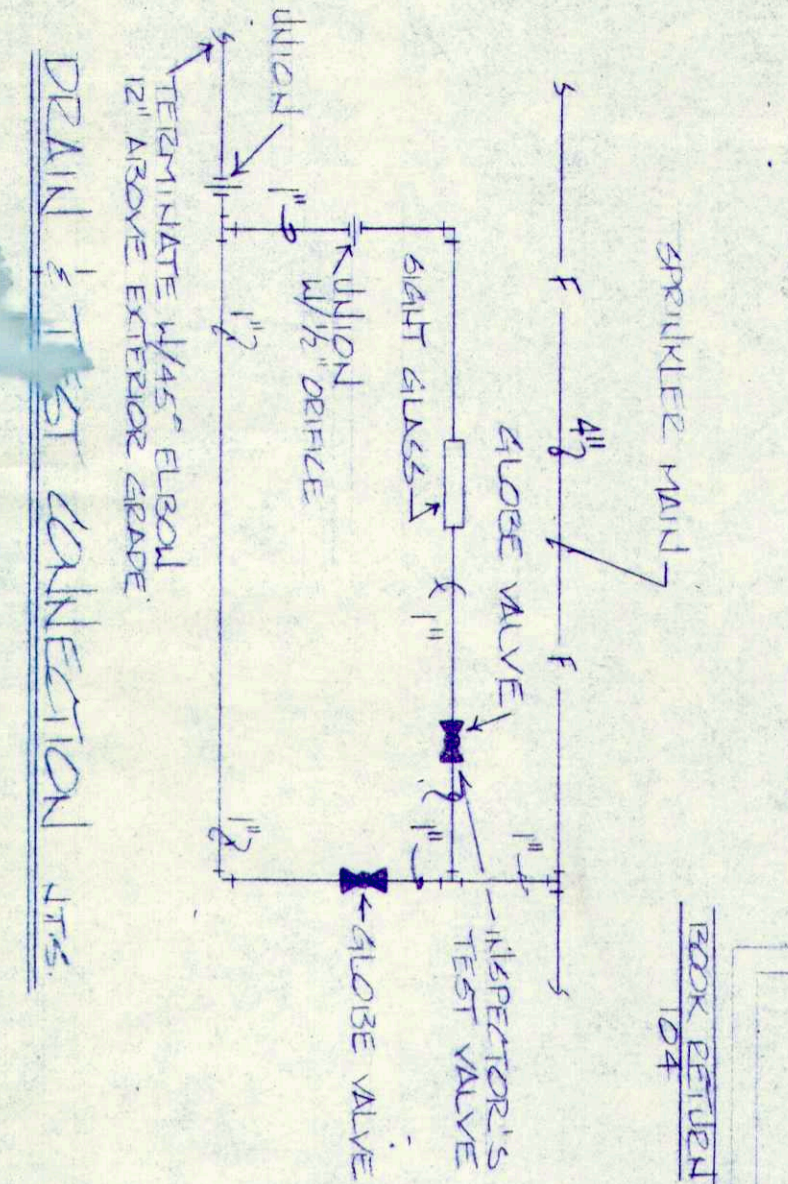 BOOK RETURN
104
SPRINKLER MAIN
F
4"
F
GLOBE VALVE
SIGHT GLASS
1"
1"
1"
INSPECTOR'S
TEST VALVE
UNION
W/½" ORIFICE
1"
GLOBE VALVE
UNION
1"
1"
TERMINATE W/45° ELBOW
12" ABOVE EXTERIOR GRADE
DRAIN & TEST CONNECTION NTS.